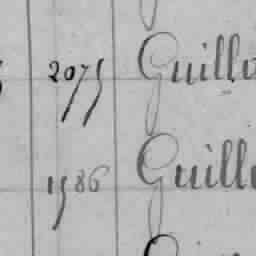 2075 Guillo
1586 Guill